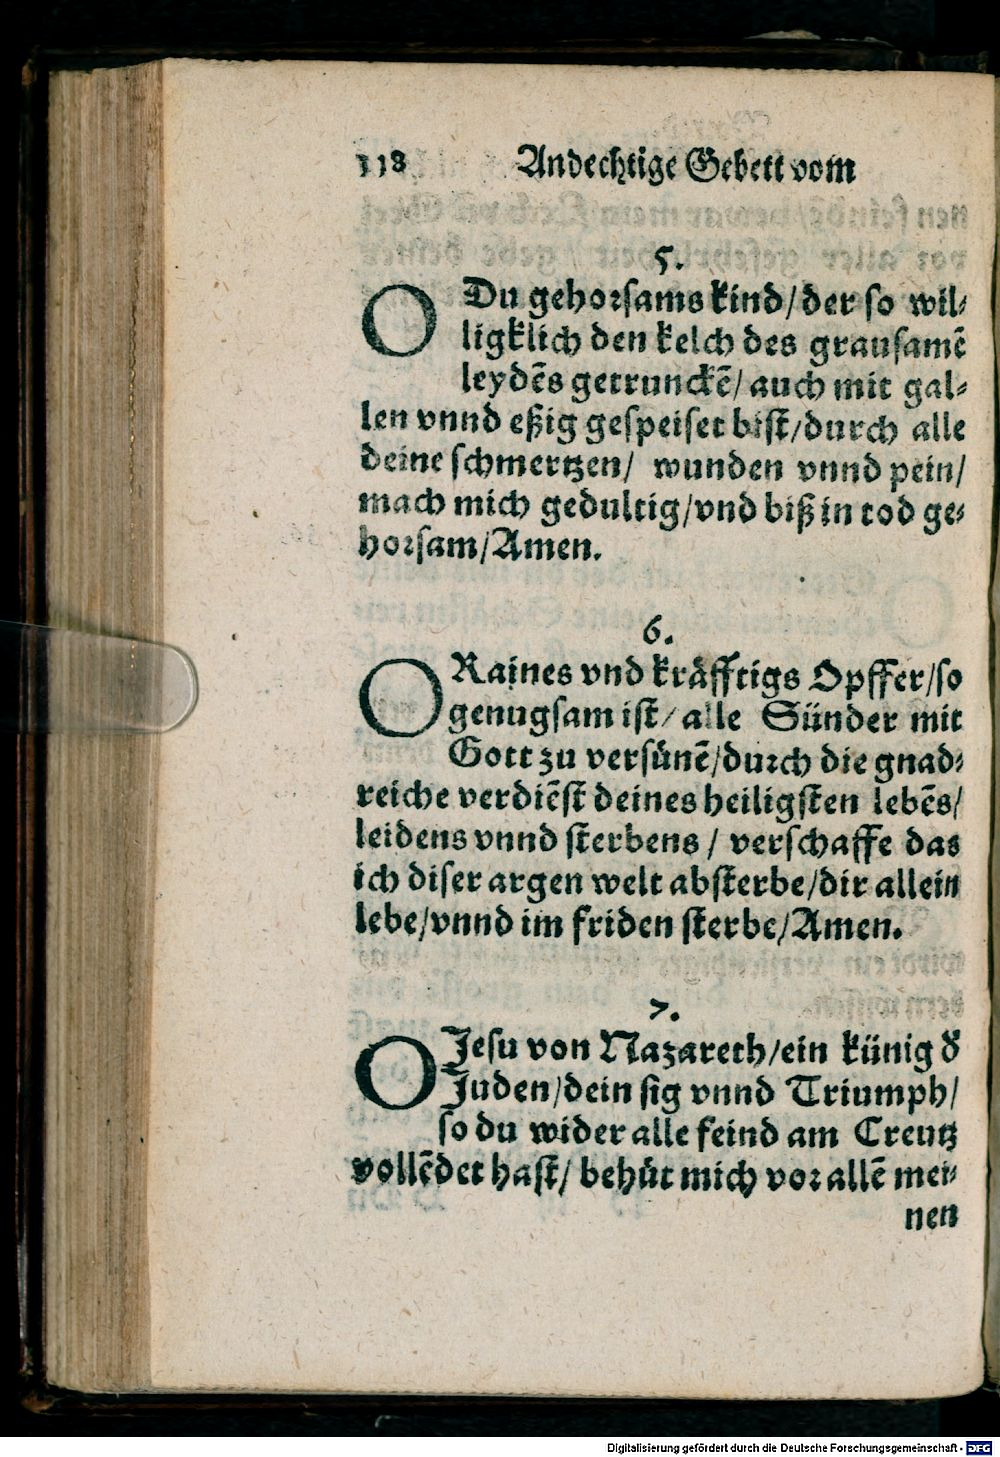 118 Andechtige Gebett vom
5.
O Du gehorsams kind/der so wil⸗
ligklich den kelch des grausamē
leydēs getrunckē/auch mit gal⸗
len vnnd eßig gespeiset bist/durch alle
deine schmertzen/ wunden vnnd pein/
mach mich gedultig/vnd biß in tod ge⸗
horsam/Amen.
6.
O Raines vnd kräfftigs Opffer/so
genugsam ist/alle Sünder mit
Gott zu versünē/durch die gnad⸗
reiche verdiēst deines heiligsten lebēs/
leidens vnnd sterbens/ verschaffe das
ich diser argen welt absterbe/dir allein
lebe/vnnd im friden sterbe/Amen.
7.
O Jesu von Nazareth/ein künig d̕
Juden/dein sig vnnd Triumph/
so du wider alle feind am Creutz
vollēdet hast/ behüt mich vor allē mei⸗
nen
Digitalisierung gefördert durch die Deutsche Forschungsgemeinschaft - DFG